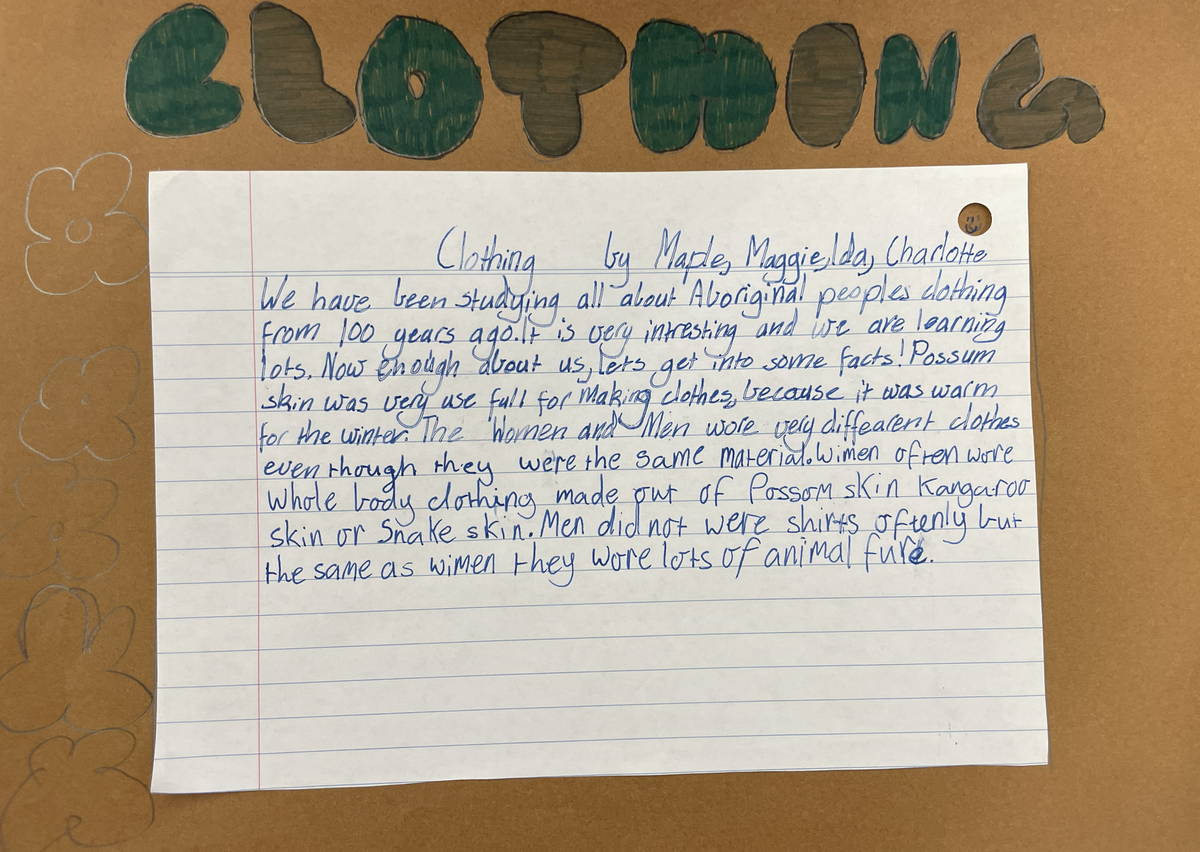 CLOTHING
Clothing by Maple, Maggie, Ida, Charlotte
We have been studying all about Aboriginal peoples clothing
from 100 years ago. It is very intresting and we are learning
lots. Now enough about us, lets get into some facts! Possum
skin was very use full for Making clothes, because it was warm
for the winter. The Women and Men wore very diffearent clothes
even though they were the same material. Wimen often wore
whole body clothing made out of Possom skin Kangaroo
skin or Snake skin. Men did not were shirts oftenly but
the same as wimen they wore lots of animal fure.